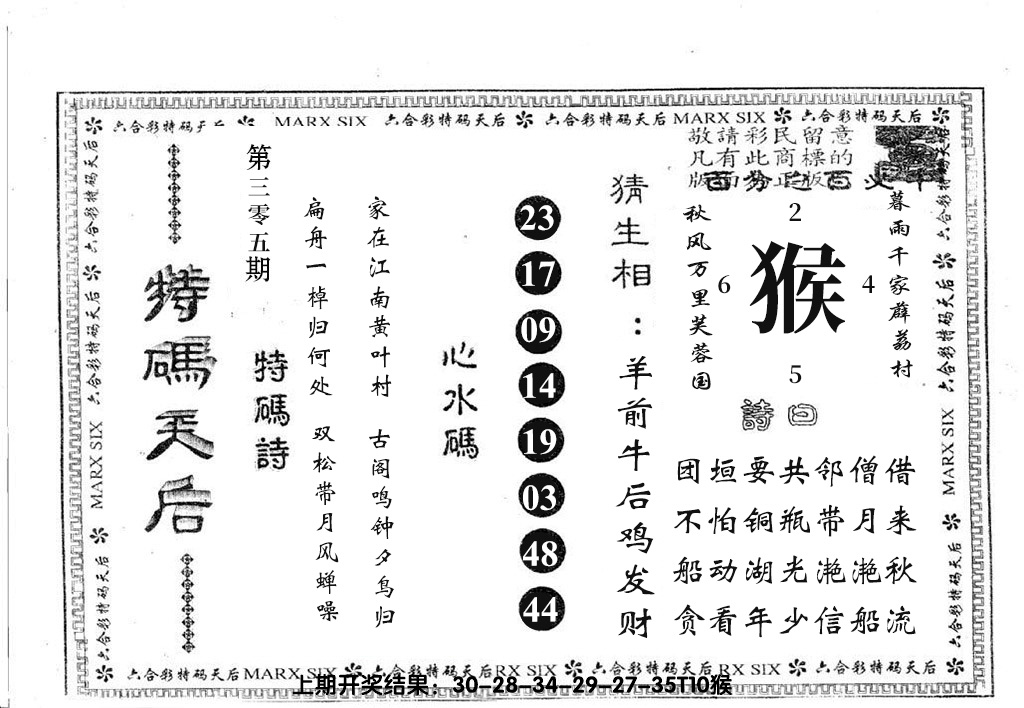 六合彩特码天后 MARX SIX 六合彩特码天后 六合彩特码天后 MARX SIX 六合彩特码天后
特碼天后
第三零五期
特碼詩
家在江南黄叶村 古阁鸣钟夕鸟归
扁舟一棹归何处 双松带月风蝉噪
心水碼
23
17
09
14
19
03
48
44
猜生相:羊前牛后鸡发财
敬請彩民留意
凡有此商標的
版面为正版
秋风万里芙蓉国
暮雨千家薜荔村
2
6 猴 4
5
詩曰
团垣要共邻僧借
不怕铜瓶带月来
船动湖光滟滟秋
贪看年少信船流
六合彩特码天后
MARX SIX
六合彩特码天后
六合彩特码天后
六合彩特码天后
六合彩特码天后
六合彩特码天后
MARX SIX
六合彩特码天后
六合彩特码天后 MARX SIX 六合彩特码天后 RX SIX 六合彩特码天后 RX SIX 六合彩特码天后
上期开奖结果：30-28-34-29-27-35T10猴